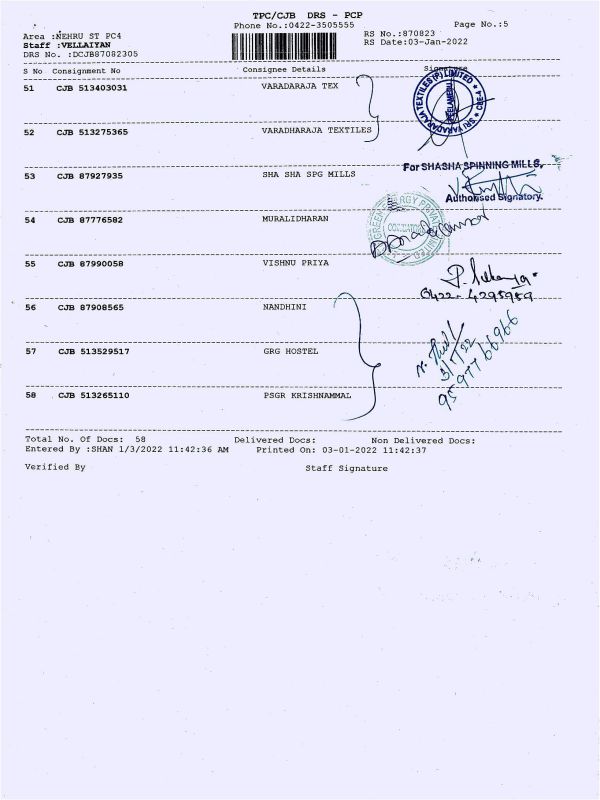 TPC/CJB DRS - PCP
Phone No.:0422-3505555
Page No.:5
Area :NEHRU ST PC4
Staff :VELLAIYAN
DRS No. :DCJB87082305
RS No.:870823
RS Date:03-Jan-2022
S No Consignment No Consignee Details Signature
51 CJB 513403031 VARADARAJA TEX
SRI VARADARAJA TEXTILES (P) LIMITED
PEELAMEDU
CBE-4
52 CJB 513275365 VARADHARAJA TEXTILES
53 CJB 87927935 SHA SHA SPG MILLS
For SHASHA SPINNING MILLS,
Authorised Signatory.
54 CJB 87776582 MURALIDHARAN
GREEN ENERGY PRIVATE LIMITED
55 CJB 87990058 VISHNU PRIYA
0422- 4295959
56 CJB 87908565 NANDHINI
57 CJB 513529517 GRG HOSTEL
3/1/22
95977 66966
58 CJB 513265110 PSGR KRISHNAMMAL
Total No. Of Docs: 58 Delivered Docs: Non Delivered Docs:
Entered By :SHAN 1/3/2022 11:42:36 AM Printed On: 03-01-2022 11:42:37
Verified By Staff Signature